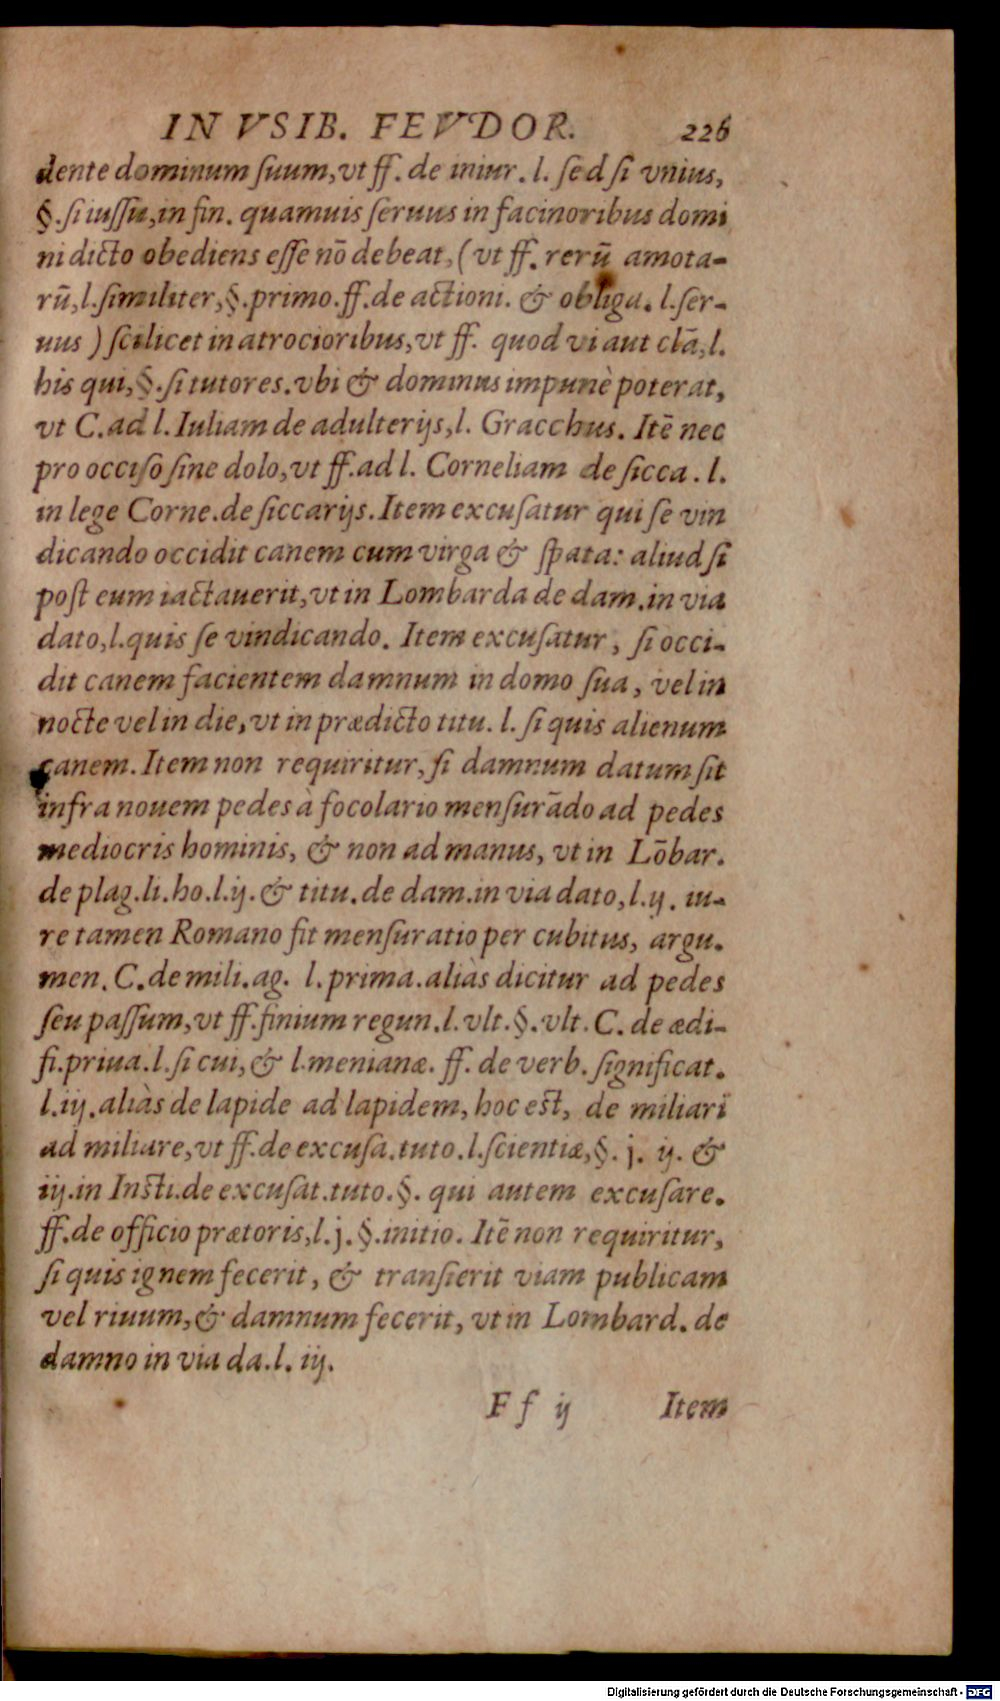 IN VSIB. FEVDOR. 226
dente dominum ſuum, vt ff. de iniur. l. ſed ſi vnius,
§. ſi iuſſu, in fin. quamuis ſeruus in facinoribus domi
ni dicto obediens eſſe nō debeat, (vt ff. rerū amota-
rū, l. ſimiliter, §. primo. ff. de actioni. & obliga. l. ſer-
uus) ſcilicet in atrocioribus, vt ff. quod vi aut clā, l.
his qui, §. ſi tutores. vbi & dominus impunè poterat,
vt C. ad l. Iuliam de adulterijs, l. Gracchus. Itē nec
pro occiſo ſine dolo, vt ff. ad l. Corneliam de ſicca. l.
in lege Corne. de ſiccarijs. Item excuſatur qui ſe vin
dicando occidit canem cum virga & ſpata: aliud ſi
poſt eum iactauerit, vt in Lombarda de dam. in via
dato, l. quis ſe vindicando. Item excuſatur, ſi occi-
dit canem facientem damnum in domo ſua, vel in
nocte vel in die, vt in prædicto titu. l. ſi quis alienum
canem. Item non requiritur, ſi damnum datum ſit
infra nouem pedes à focolario menſurādo ad pedes
mediocris hominis, & non ad manus, vt in Lōbar.
de plag. li. ho. l. ij. & titu. de dam. in via dato, l. ij. iu-
re tamen Romano fit menſuratio per cubitus, argu.
men. C. de mili. ag. l. prima. aliàs dicitur ad pedes
ſeu paſſum, vt ff. finium regun. l. vlt. §. vlt. C. de ædi-
fi. priua. l. ſi cui, & l. menianæ. ff. de verb. ſignificat.
l. iij. aliàs de lapide ad lapidem, hoc eſt, de miliari
ad miliare, vt ff. de excuſa. tuto. l. ſcientiæ, §. j. ij. &
iij. in Inſti. de excuſat. tuto. §. qui autem excuſare.
ff. de officio prætoris, l. j. §. initio. Itē non requiritur,
ſi quis ignem fecerit, & tranſierit viam publicam
vel riuum, & damnum fecerit, vt in Lombard. de
damno in via da. l. iij.
F f ij Item
Digitalisierung gefördert durch die Deutsche Forschungsgemeinschaft - DFG